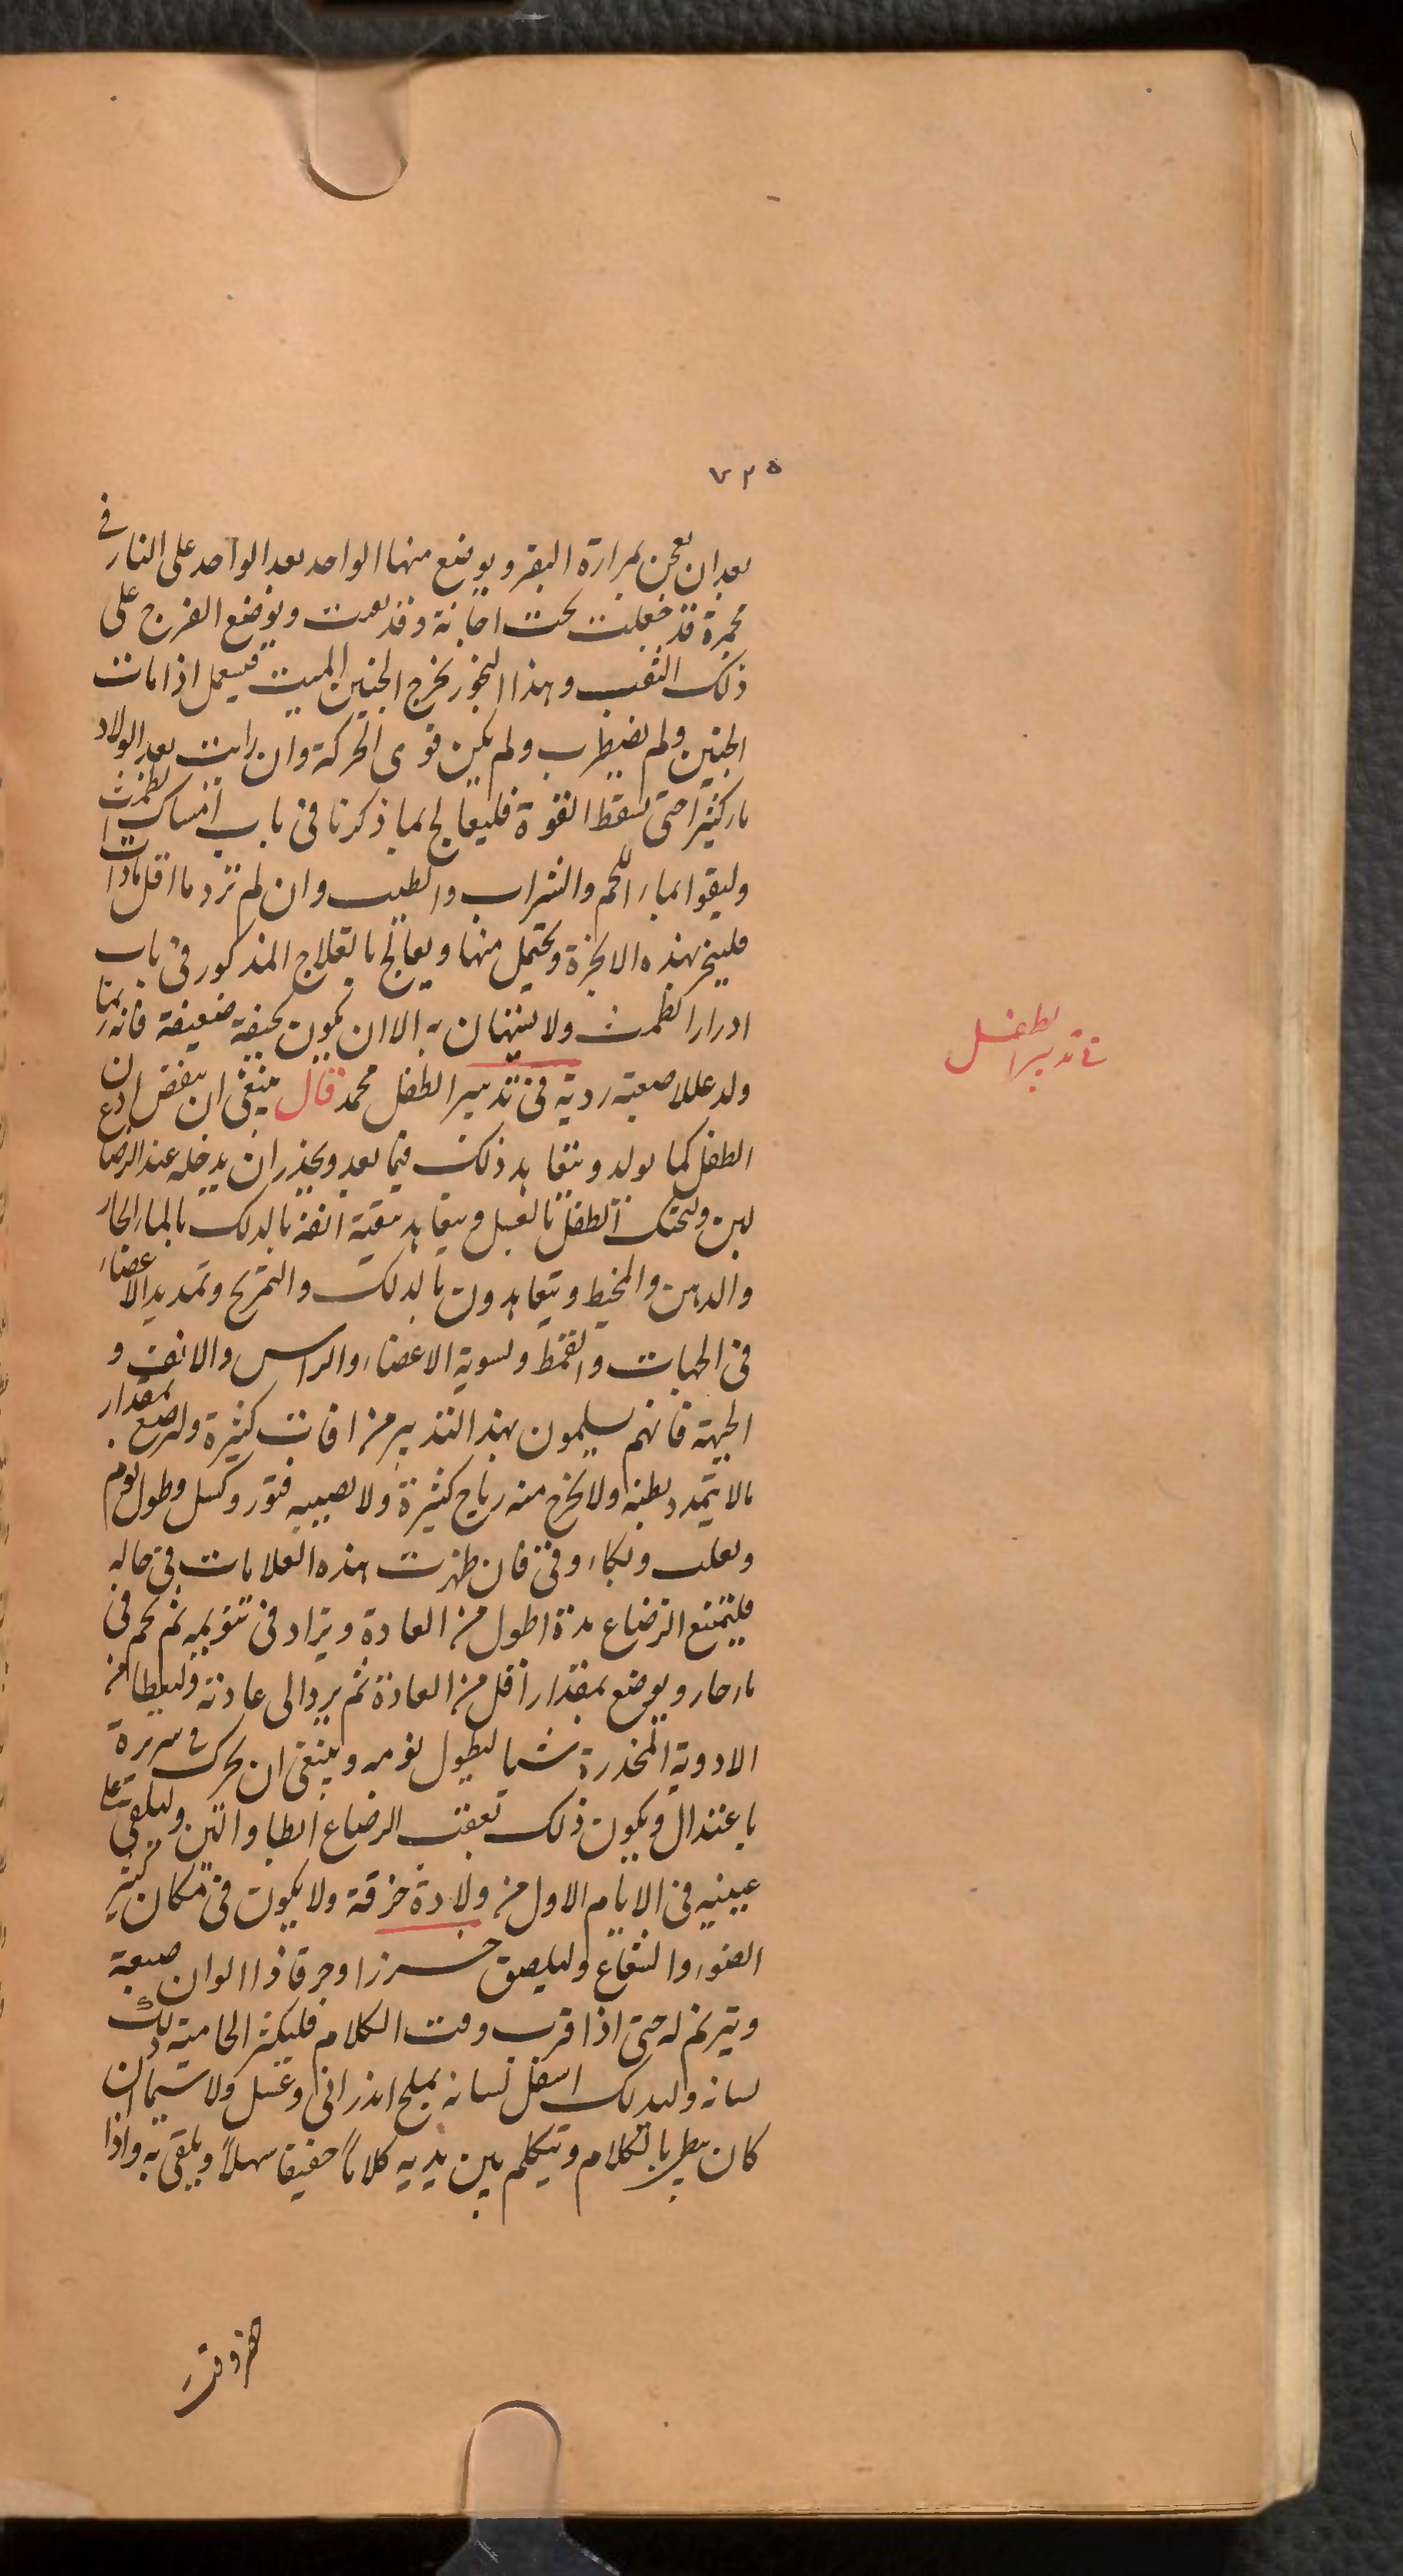 ٧٢٥
بعد ان يعجن بمرارة البقر و يوضع منها الواحد بعد الواحد على النار فى
مجمرة قد جعلت تحت اجانة و قد نقبت ويوضع الفرج على
ذلك الثقب وهذا البخور يخرج الجنين الميت فيستعمل اذا مات
الجنين ولم يضطرب ولم يكن قوى الحركة وان رايت بعد الولاد
ما ركثيرا حتى تسقط القوة فليعالج بما ذكرنا فى باب امساك الطمث
وليقوا بماء اللحم والشراب والطيب وان لم تر دما اقل ماذا
فليبخر بهذه الابخرة وتحتمل منها ويعالج بالعلاج المذكور فى باب
ادرار الطمث ولا يستهان به الا ان تكون نحيفة ضعيفة فانه ربما
ولد عللا صعبة ردية فى تدبير الطفل محمد قال ينبغى ان ينفض اذن
الطفل كما يولد و يتعاهد ذلك فيما بعد ويحذر ان يدخله عند الرضاع
لبن وليحنك الطفل بالعسل ويتعاهد تنقية انفه بالدلك بالماء الحار
والدهن والمخيط ويتعاهدون بالدلك والتمريخ وتمديد الاعضاء
فى الجهات والقمط وتسوية الاعضاء والراس والانف و
الجبهة فانهم يسلمون بهذا التدبير من افات كثيرة وليرضع بمقدار
مالا يتمدد بطنه ولا يخرج منه رياح كثيرة ولا يصيبه فتور وكسل وطول نوم
وتقلب وبكاء وقى فان ظهرت هذه العلامات فى حاله
فليمنع الرضاع مدة اطول من العادة ويزاد فى تنويمه ثم يحم فى
ماء حار و يوضع بمقدار اقل من العادة ثم يرد الى عادته وليعطا من
الادوية المخدرة شيا ليطول نومه وينبغى ان يحرك فى سريره
باعتدال ويكون ذلك بعقب الرضاع ابطا والين وليلقى على
عينيه فى الايام الاول من ولادة خرقة ولا يكون فى مكان كثير
الضوء والشعاع وليلصق خرزا وخرقا ذا الوان صبعة
ويترنم له حتى اذا قرب وقت الكلام فليكثر الحاضنة دلك
لسانه وليدلك اسفل لسانه بملح اندرانى وعسل ولا سيما ان
كان بطيا بالكلام ويتكلم بين يديه كلاما خفيفا سهلا ويلقى به واذا
فى تدبير الطفل